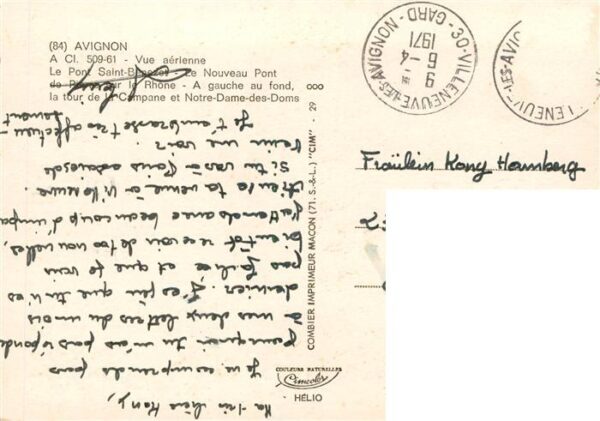 (84) AVIGNON
A Cl. 509-61 - Vue aérienne
Le Pont Saint-Bénezet - Le Nouveau Pont
de sur le Rhône - A gauche au fond,
la tour de la Campane et Notre-Dame-des-Doms
30-VILLENEUVE-LES-AVIGNON - GARD -
9 H
6-4
1971
LENEUVE-LES-AVIG
Fräulein Kony Hamberg
COMBIER IMPRIMEUR MACON (71. S.-&-L.) "CIM" - 29
COULEURS NATURELLES
Cimcolor
HÉLIO
Ma très chère Kony,
Je ne comprends pas
pourquoi tu m'as pas
à mes deux lettres du mois
dernier. J'espère que tu n'es
pas fâchée et que je vais
bientôt recevoir de tes nouvelles,
J'attends avec beaucoup d'impa
tience ta venue à Villeneuve.
Si tu vas à Paris
venir me voir?
Je t'embrasse très affectueu-
sement